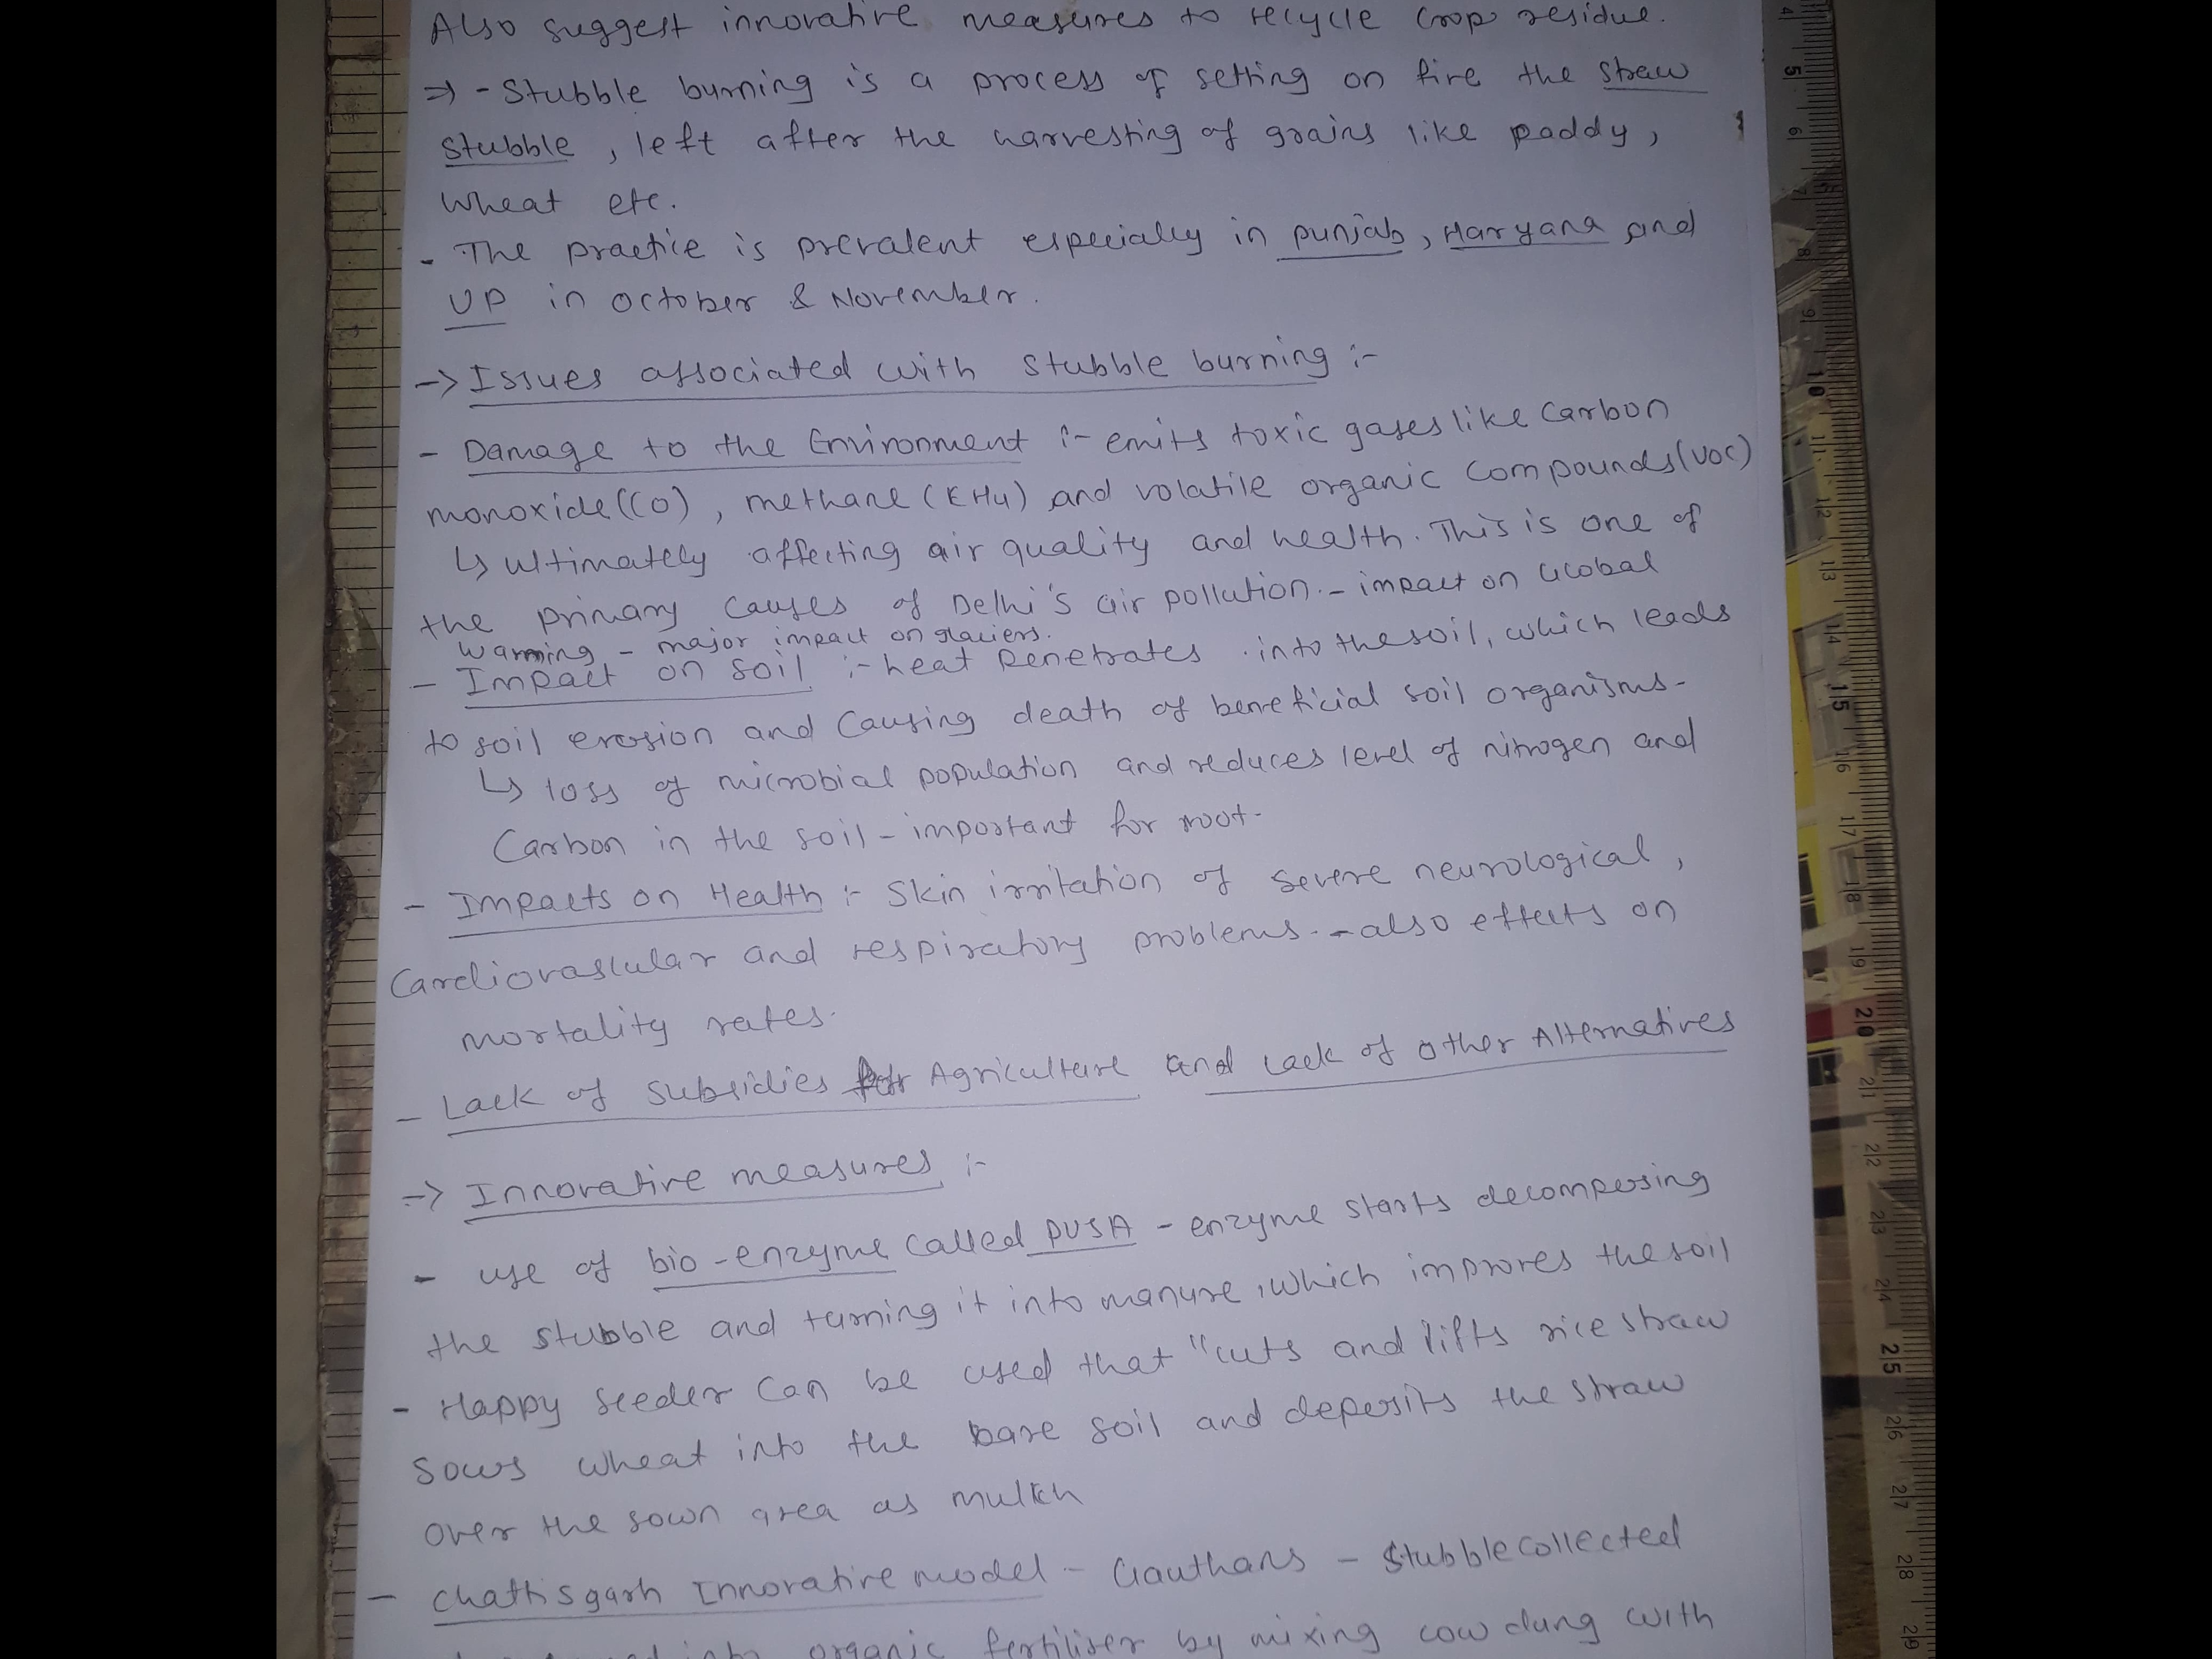 Also suggest innovative measures to recycle crop residue.
=> - Stubble burning is a process of setting on fire the straw
stubble, left after the harvesting of grains like paddy,
wheat etc.
- The practice is prevalent especially in punjab, Haryana and
UP in october & November.
-> Issues associated with stubble burning :-
- Damage to the Environment :- emits toxic gases like Carbon
monoxide (CO), methane (CH4) and volatile organic compounds (VOC)
↳ ultimately affecting air quality and health. This is one of
the primary causes of Delhi's air pollution. - impact on Global
warming - major impact on glaciers.
- Impact on soil :- heat penetrates into the soil, which leads
to soil erosion and causing death of beneficial soil organisms-
↳ loss of microbial population and reduces level of nitrogen and
Carbon in the soil - important for root.
- Impacts on Health :- Skin irritation of severe neurological,
Cardiovascular and respiratory problems. - also effects on
mortality rates.
- Lack of subsidies for Agriculture and Lack of other Alternatives
-> Innovative measures :-
- use of bio-enzyme called PUSA - enzyme starts decomposing
the stubble and turning it into manure, which improves the soil
- Happy seeder can be used that "cuts and lifts rice straw
sows wheat into the bare soil and deposits the straw
over the sown area as mulch
- Chattisgarh Innovative model - Gauthans - stubble collected
into organic fertiliser by mixing cow dung with
4 5 6 7 8 9 10 11 12 13 14 15 16 17 18 19 20 21 22 23 24 25 26 27 28 29